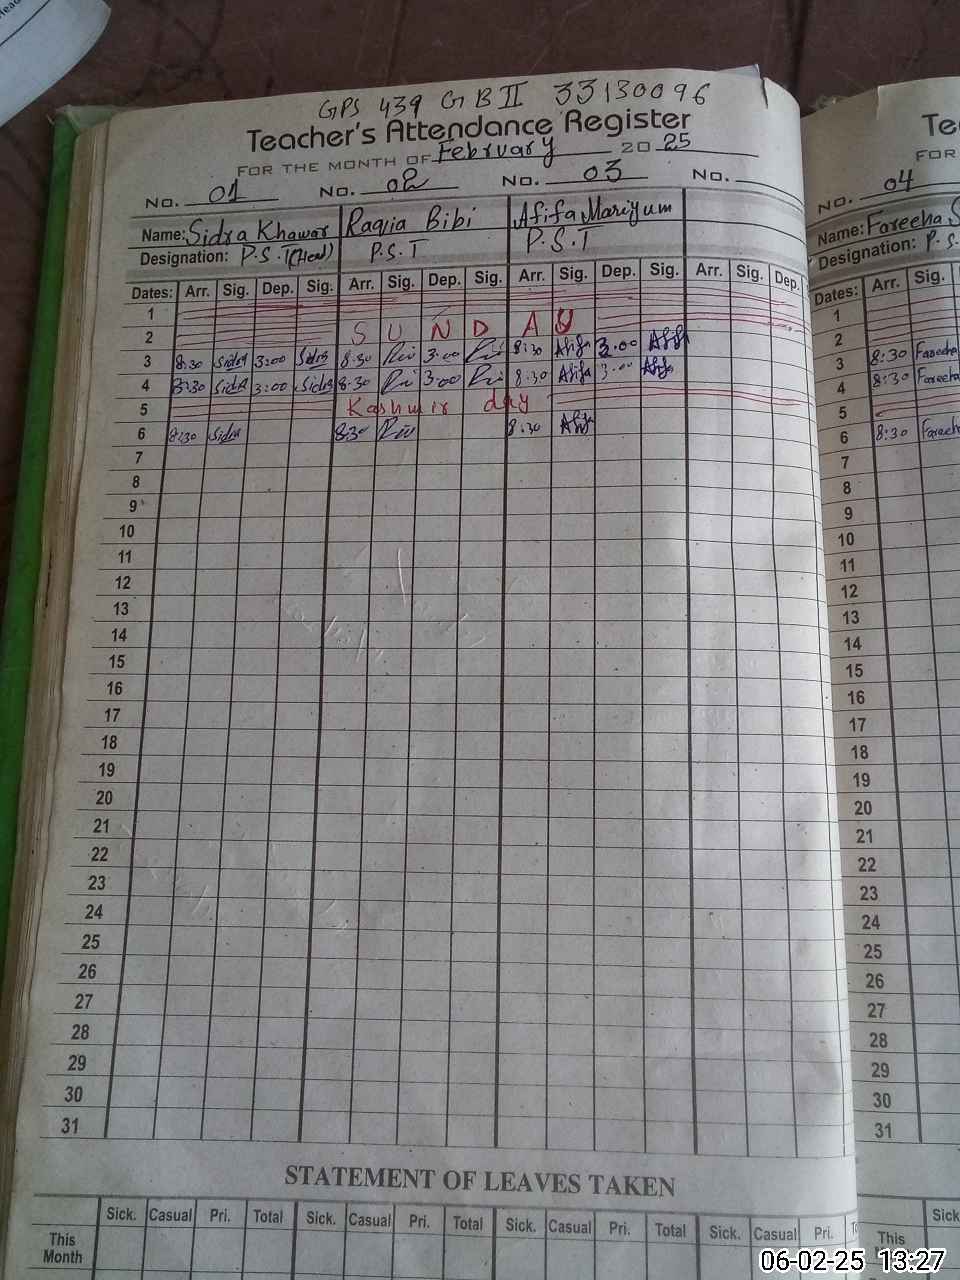 GPS 439 GB II 33130096
Teacher's Attendance Register
FOR THE MONTH OF February 2025
No. 01 No. 02 No. 03 No.
Name: Sidra Khawar Raqia Bibi Afifa Mariyum
Designation: P.S.T(Hen) P.S.T P.S.T
Dates: Arr. Sig. Dep. Sig. Arr. Sig. Dep. Sig. Arr. Sig. Dep. Sig. Arr. Sig. Dep.
1
2 SUNDAY
3 8:30 Sidra 3:00 Sidra 8:30 3:00 8:30 Afifa 3:00 Afifa
4 8:30 Sidra 3:00 Sidra 8:30 3:00 8:30 Afifa 3:00 Afifa
5 Kashmir day
6 8:30 Sidra 8:30 8:30 Afifa
7
8
9
10
11
12
13
14
15
16
17
18
19
20
21
22
23
24
25
26
27
28
29
30
31
STATEMENT OF LEAVES TAKEN
Sick. Casual Pri. Total Sick. Casual Pri. Total Sick. Casual Pri. Total Sick. Casual Pri.
This Month
Te
FOR
No. 04
Name: Fareeha S
Designation: P.S.
Dates: Arr. Sig.
1
2
3 8:30 Fareeha
4 8:30 Fareeha
5
6 8:30 Fareeha
7
8
9
10
11
12
13
14
15
16
17
18
19
20
21
22
23
24
25
26
27
28
29
30
31
Sick
This
06-02-25 13:27